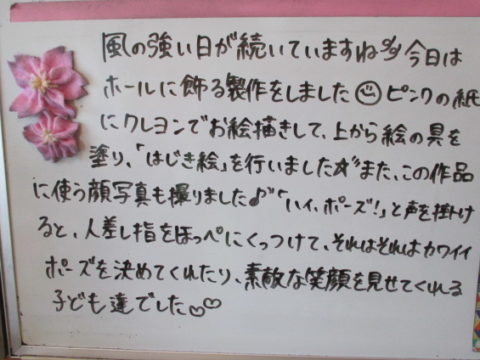 風の強い日が続いていますね 今日は
ホールに飾る製作をしました ピンクの紙
にクレヨンでお絵描きして、上から絵の具を
塗り、「はじき絵」を行いました☆また、この作品
に使う顔写真も撮りました♪「ハイ、ポーズ!」と声を掛け
ると、人差し指をほっぺにくっつけて、それはそれはカワイイ
ポーズを決めてくれたり、素敵な笑顔を見せてくれる
子ども達でした♡♡